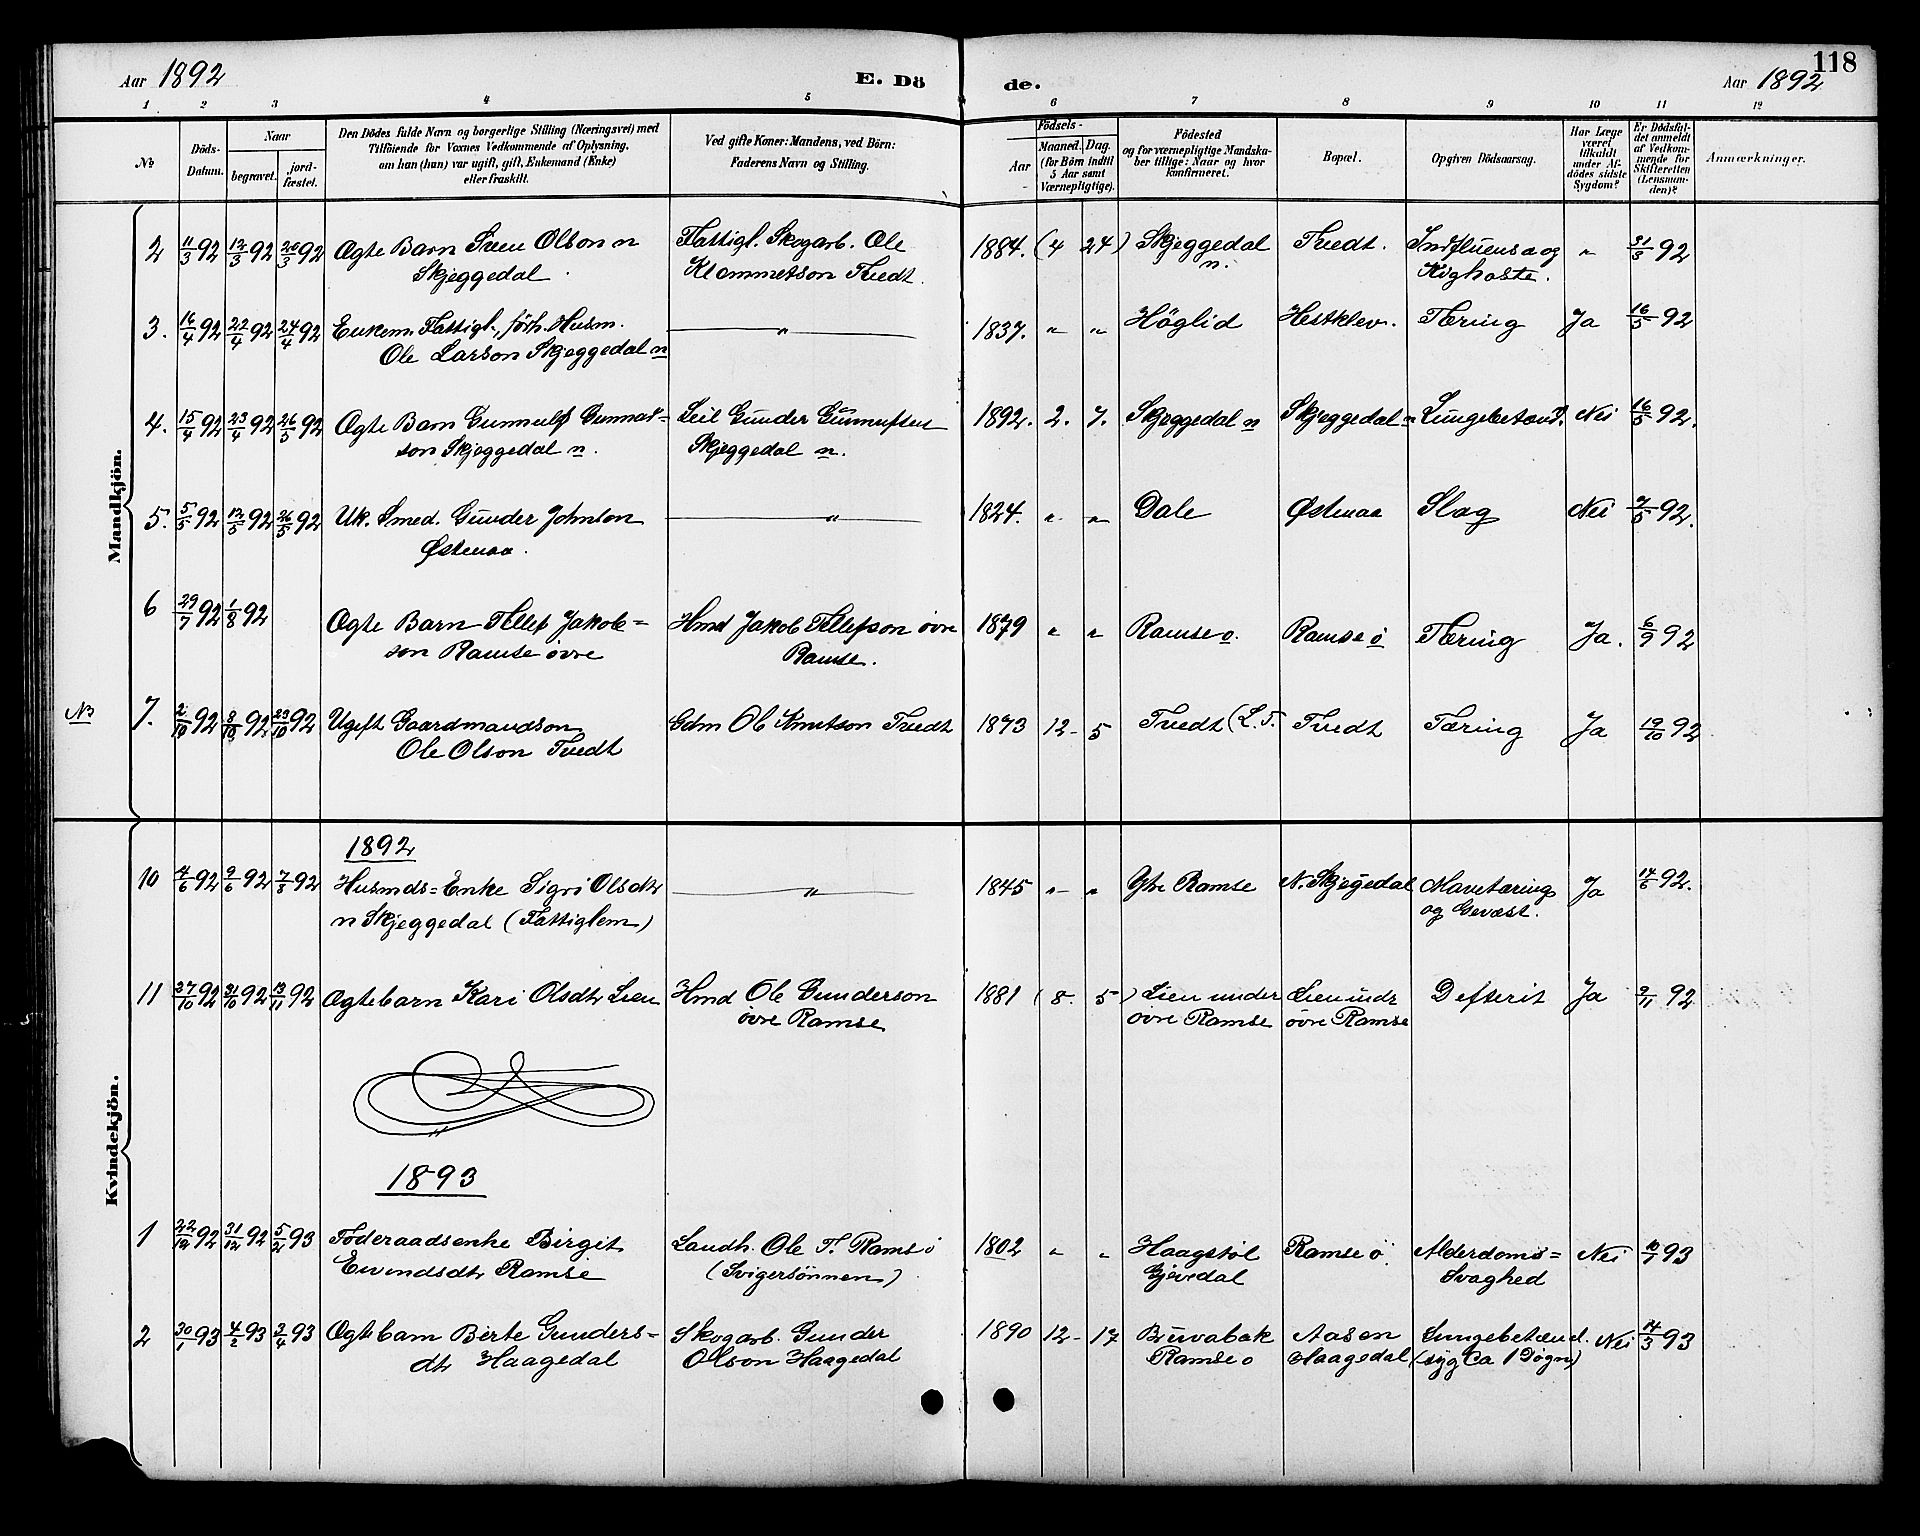 118
Aar 1892
E. Dö
de.
Aar 1892
1 2 3 4 5 6 7 8 9 10 11 12
№
Döds-
Datum.
Naar
begravet.
jord-
fæstet.
Den Dödes fulde Navn og borgerlige Stilling (Næringsvei) med
Tilföiende for Voxnes Vedkommende af Oplysning.
om han (hun) var ugift, gift, Enkemand (Enke)
eller fraskilt.
Ved gifte Koner: Mandens, ved Börn:
Faderens Navn og Stilling.
Födsels-
Aar
Maaned. Dag.
(for Börn indtil
5 Aar samt
Værnepligtige).
Födested
og for værnepligtige Mandska-
ber tillige: Naar og hvor
konfirmeret.
Bopæl.
Opgiven Dödsaarsag.
Har Læge
været
tilkaldt
under Af-
dödes sidste
Sygdom?
Er Dödsfal-
det anmeldt
af Vedkom-
mende for
Skifteretten
(Lensman-
den)?
Anmærkninger.
Mandkjön.
2 11/3 92 17/3 92 20/3 92 Ægte Barn Sven Olson n Fattigl. Skogarb. Ole 1884. (4 24) Skjeggedal Tvedt. Influensa og " 31/3 92
Skjeggedal Klommetson Tvedt. n. Kighoste.
3. 16/4 92 22/4 92 24/4 92 Enkem. Fattigl., förh. Husm. " 1837. " " Höglid Hestklev. Tæring Ja 16/5 92
Ole Larson Skjeggedal n
4. 15/4 92 23/4 92 26/5 92 Ægte Barn Gunnulf Gunnar- Leil Gunder Gunnufsen 1892. 2. 7. Skjeggedal n Skjeggedal n Lungebetænd. Nei 16/5 92.
son Skjeggedal n. Skjeggedal n.
5. 5/5 92 12/5 92 26/5 92 Uk. Smed. Gunder Johnson " 1824. " " Dale Østenaa Slag Nei 7/5 92.
Østenaa.
6 29/7 92 1/8 92 Ægte Barn Tellef Jakob= Hmd Jakob Tellefson övre 1879 " " Ramse o. Ramse ö Tæring Ja. 6/9 92
son Ramse övre Ramse.
NB 7. 2/10 92 8/10 92 23/10 92 Ugift Gaardmandson Gdm Ole Knutson Tvedt 1873 12- 5 Tvedt (L.T. Tvedt Tæring Ja 19/10 92
Ole Olson Tvedt
Kvindekjön.
1892
10 4/6 92 9/6 92 7/8 92 Husmds=Enke Sigri Olsdtr " 1845 " " Ytre Ramse N. Skjegedal Mavetæring Ja 14/6 92.
n Skjeggedal (Fattiglem) og Gevæst.
11 27/10 92 31/10 92 13/11 92 Ægtebarn Kari Olsdtr Lien Hmd Ole Gunderson 1881 (8. 5) Lien under Lien undr Defterit Ja 9/11 92
övre Ramse övre Ramse övre Ramse
1893
1 22/12 92 31/12 92 5/2 93 Föderaadsenke Birgit Landh. Ole T. Rams ö 1802 " " Haagstöl Ramse ö. Alderdoms= Nei 10/1 93
Eivindsdtr Ramse (Svigersönnen) Gjövedal Svaghed
2 30/1 93 4/2 93 3/4 93 Ægtebarn Birte Gunders= Skogarb. Gunder 1890 12- 17 Buvabak Aasen Lungebetænd. Nei 14/3 93
dtr Haagedal Olson Haagedal Ramse o Haagedal (syg Ca 1 Dögn)